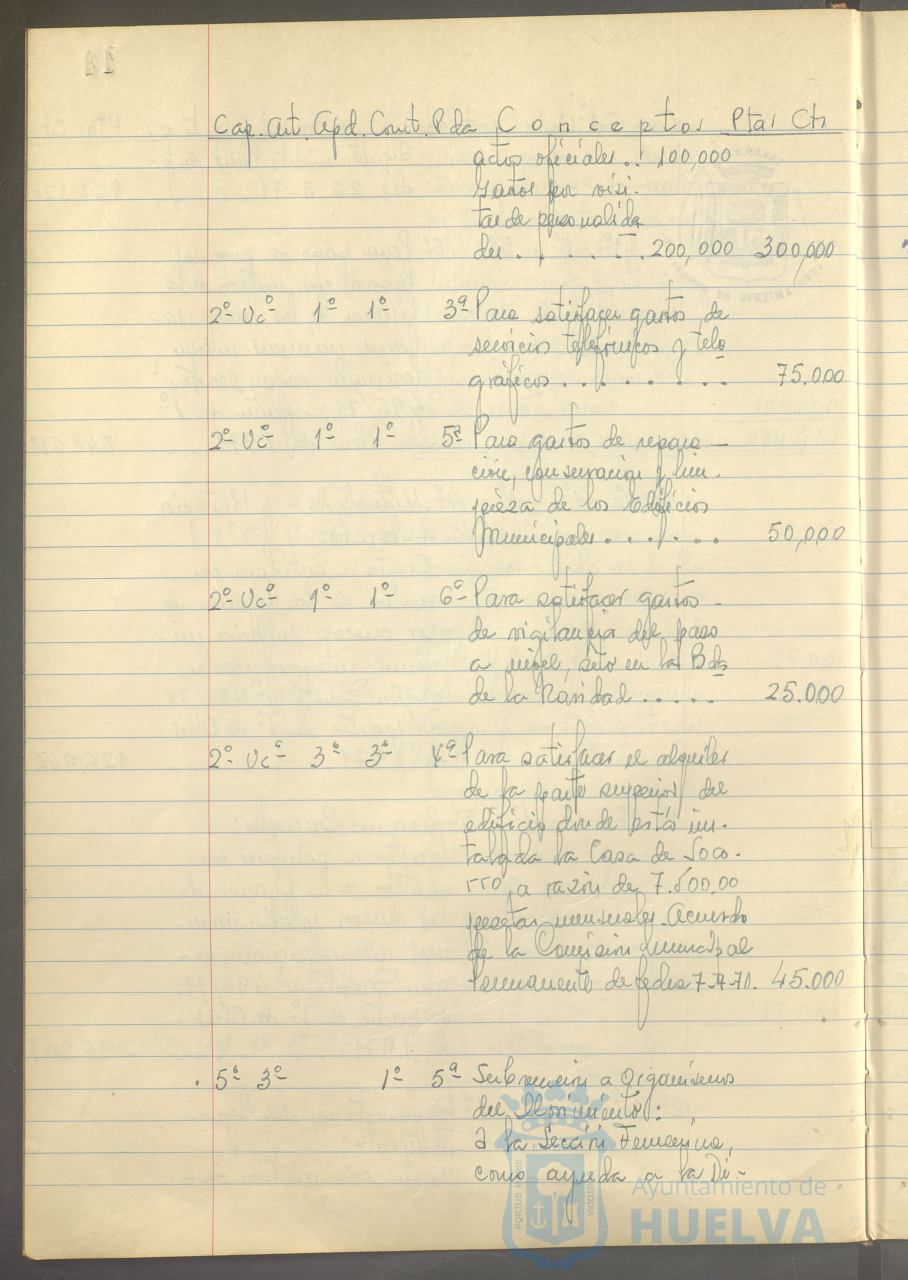 Cap. Art. Apd. Cont. Pda Conceptos Ptas Cts
actos oficiales.. 100,000
gastos por visi-
tas de personalida
des . . . . . . 200,000 300,000
2º Uº 1º 1º 3ª Para satisfacer gastos de
servicios telefónicos y tele
gráficos . . . . . . . . 75.000
2º Uº 1º 1º 5ª Para gastos de repara-
ción, conservación y lim-
pieza de los Edificios
Municipales . . . . . . 50,000
2º Uº 1º 1º 6ª Para satisfacer gastos
de vigilancia del paso
a nivel, sito en la Bda
de la Navidad . . . . . 25.000
2º Uº 3º 3º 4ª Para satisfacer el alquiler
de la parte superior del
edificio donde está ins-
talada la Casa de Soco-
rro, a razón de 7.500,00
pesetas mensuales. Acuerdo
de la Comisión Municipal
Permanente de fecha 7-7-71. 45.000
5º 3º 1º 5ª Subvención a Organismos
del Movimiento:
a la Sección Femenina,
como ayuda a la Di-
PORTUS MARIS
CUSTODIA
Ayuntamiento de
HUELVA